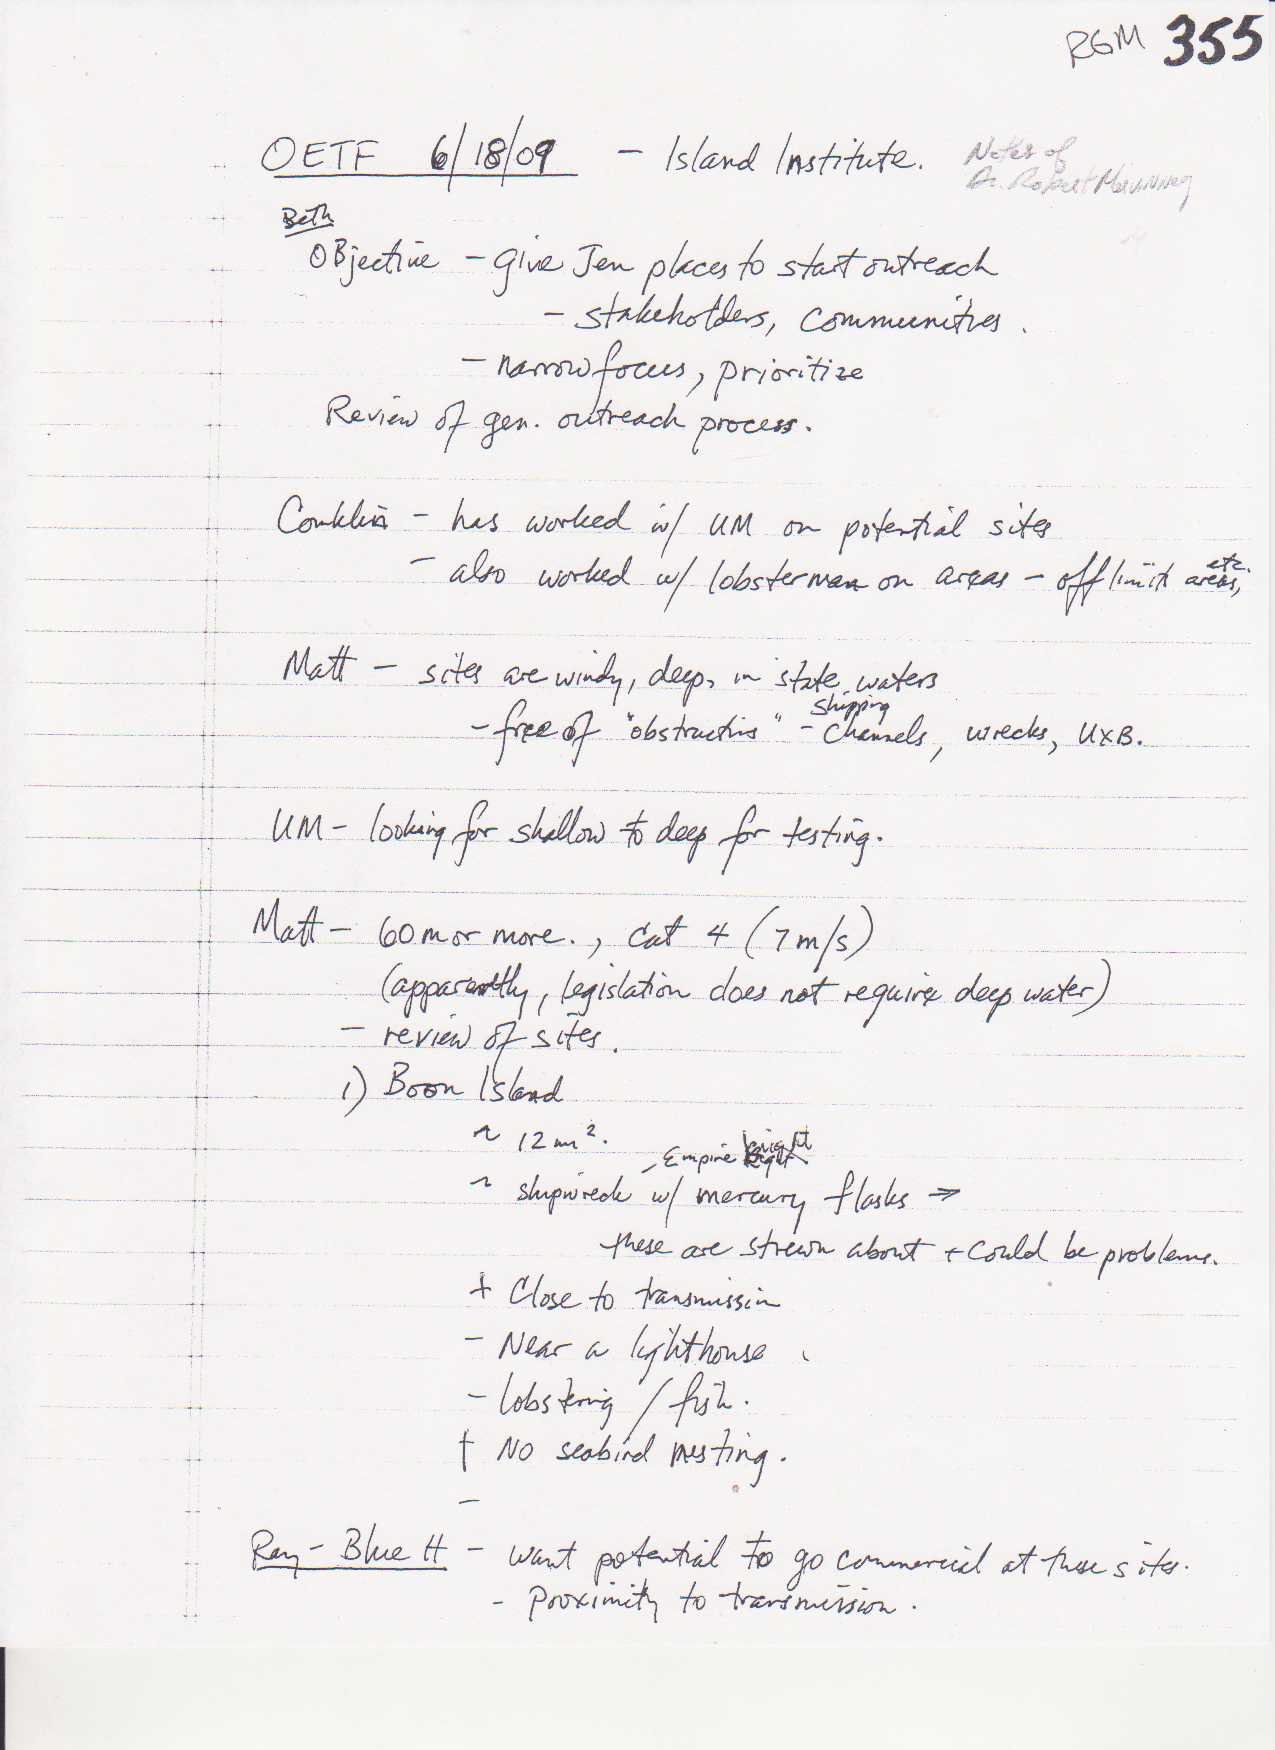 RGM 355
OETF 6/18/09 – Island Institute.
Notes of
Dr. Robert
Beth
Objective – give Jen places to start outreach
– stakeholders, communities.
– narrow focus, prioritize
Review of gen. outreach process.
Conklin – has worked w/ UM on potential sites
etc.
– also worked w/ lobsterman on areas – off limit areas,
Matt – sites are windy, deep, in state waters
shipping
– free of "obstructions" – channels, wrecks, UXB.
UM – looking for shallow to deep for testing.
Matt – 60 m or more., cat 4 (7 m/s)
(apparently, legislation does not require deep water)
– review of sites.
1) Boon Island
~ 12 mi².
– Empire Knight
~ shipwreck w/ mercury flasks →
these are strewn about + could be problems.
+ Close to transmission
– Near a lighthouse.
– lobstering / fish.
+ No seabird nesting.
–
Ray – Blue H – want potential to go commercial at these sites.
– proximity to transmission.